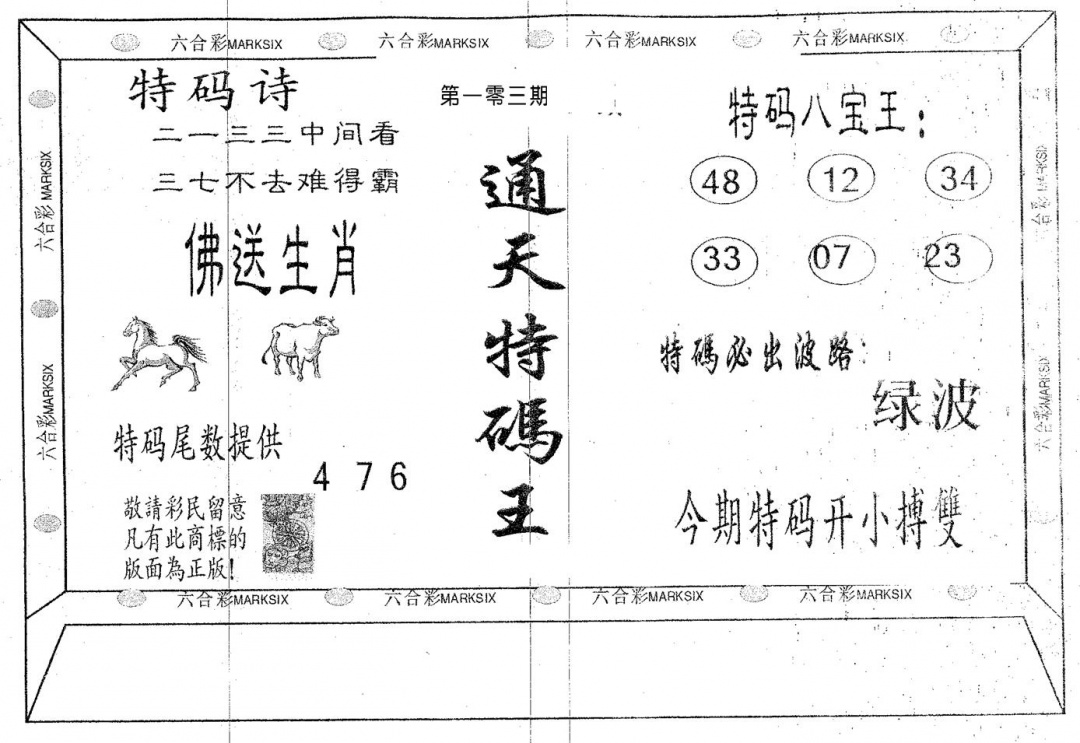 六合彩MARKSIX 六合彩MARKSIX 六合彩MARKSIX 六合彩MARKSIX
六合彩MARKSIX
六合彩MARKSIX
特码诗
二一三三中间看
三七不去难得霸
佛送生肖
特码尾数提供
4 7 6
敬請彩民留意
凡有此商標的
版面為正版!
第一零三期
通天特碼王
特码八宝王:
48 12 34
33 07 23
特碼必出波路:
绿波
今期特码开小搏雙
六合彩MARKSIX
六合彩MARKSIX
六合彩MARKSIX 六合彩MARKSIX 六合彩MARKSIX 六合彩MARKSIX